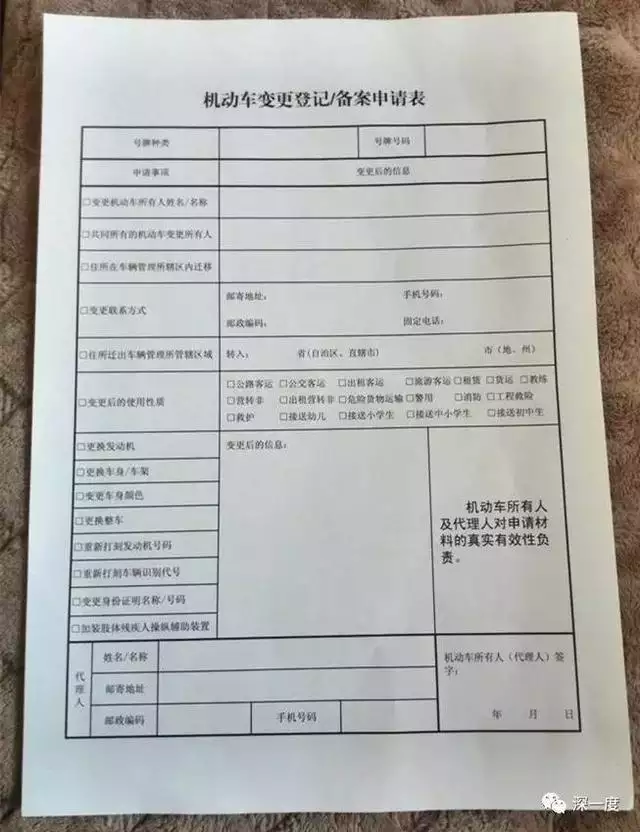 机动车变更登记/备案申请表
号牌种类 号牌号码
申请事项 变更后的信息
□变更机动车所有人姓名/名称
□共同所有的机动车变更所有人
□住所在车辆管理所辖区内迁移
□变更联系方式
邮寄地址: 手机号码:
邮政编码: 固定电话:
□住所迁出车辆管理所管辖区域 转入: 省(自治区、直辖市) 市(地、州)
□变更后的使用性质
□公路客运 □公交客运 □出租客运 □旅游客运 □租赁 □货运 □教练
□营转非 □出租营转非 □危险货物运输 □警用 □消防 □工程救险
□救护 □接送幼儿 □接送小学生 □接送中小学生 □接送初中生
□更换发动机
□更换车身/车架
□变更车身颜色
□更换整车
□重新打刻发动机号码
□重新打刻车辆识别代号
□变更身份证明名称/号码
□加装肢体残疾人操纵辅助装置
变更后的信息:
机动车所有人
及代理人对申请材
料的真实有效性负
责。
代理人
姓名/名称
邮寄地址
邮政编码 手机号码
机动车所有人(代理人)签
字:
年 月 日
深一度